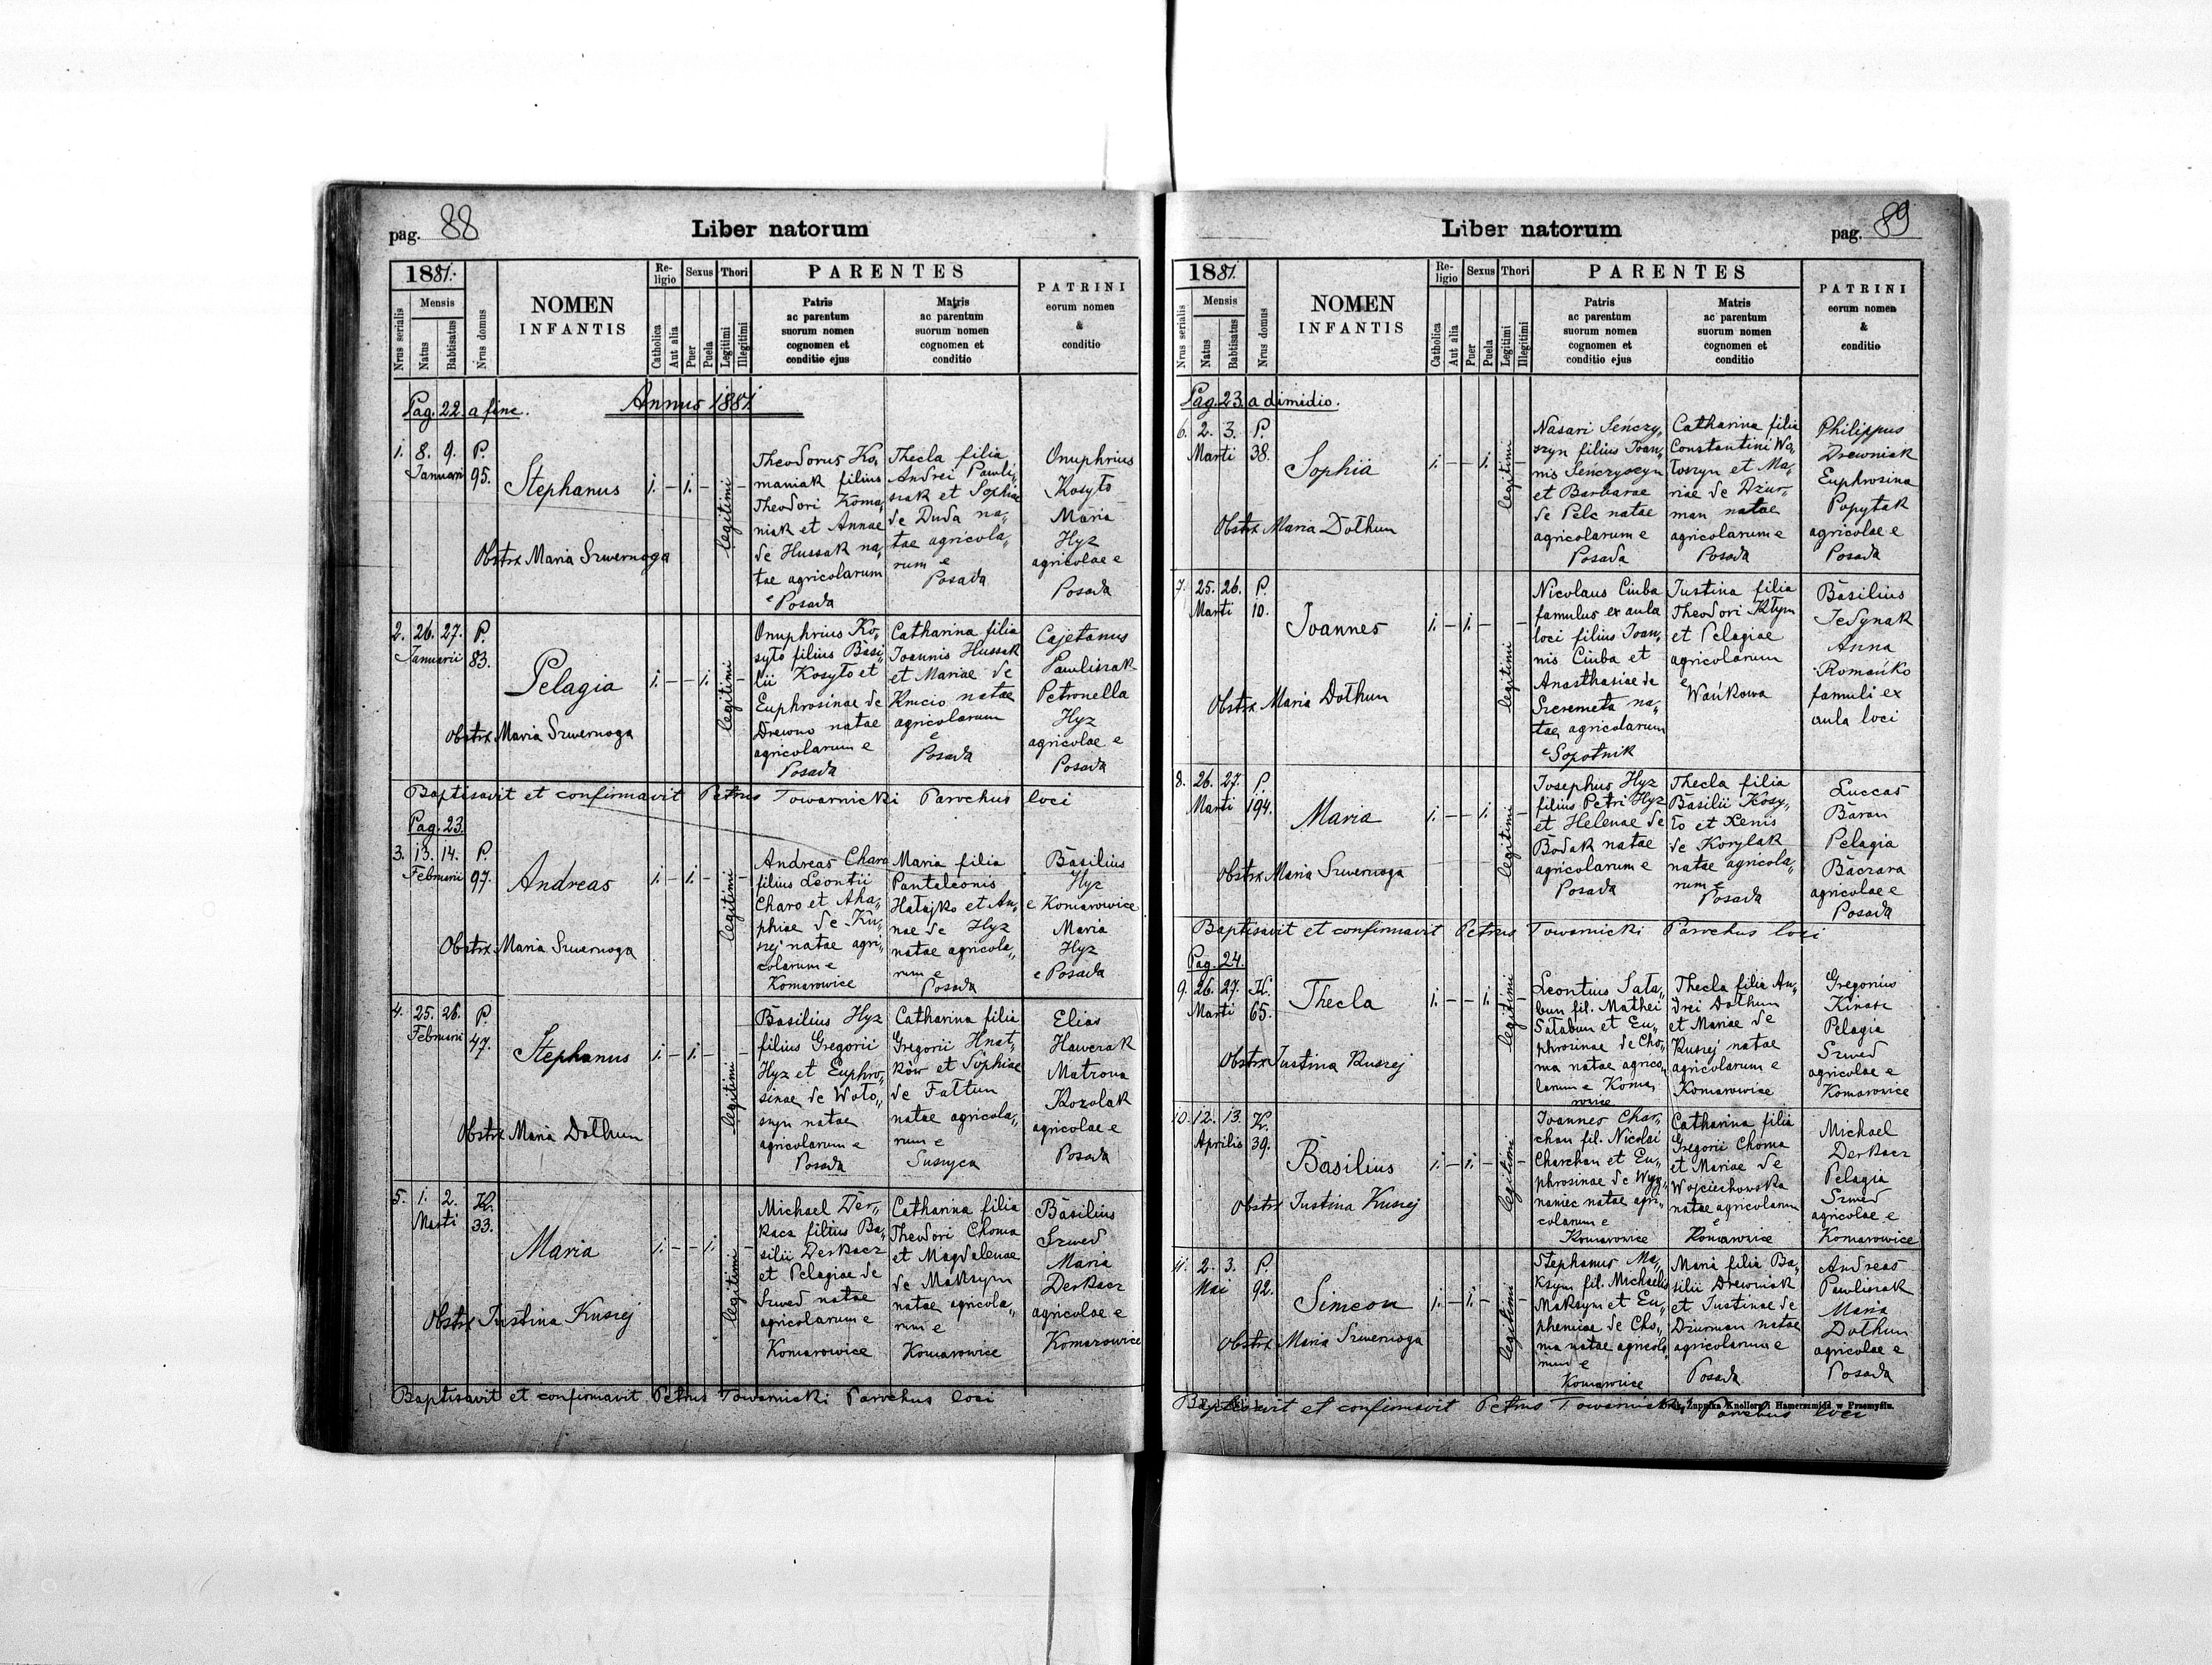 pag. 88
Liber natorum
1881.
Nrus serialis
Mensis
Natus
Babtisatus
Nrus domus
NOMEN
INFANTIS
Re-
ligio
Catholica
Aut alia
Sexus
Puer
Puela
Thori
Legitimi
Illegitimi
PARENTES
Patris
ac parentum
suorum nomen
cognomen et
conditio ejus
Matris
ac parentum
suorum nomen
cognomen et
conditio
PATRINI
eorum nomen
&
conditio
Pag. 22. a fine.
Annus 1881
1. 8. 9. P.
Januarii 95.
Stephanus
1. – 1. – legitimi –
Obstrx Maria Szwernoga
Theodorus Ko„
maniak filius
Theodori Koma„
niak et Annae
de Hussak na„
tae agricolarum
e Posada
Thecla filia
Andrei Pawli„
szak et Sophiae
de Duda na„
tae agricola„
rum e
Posada
Onuphrius
Kosyło
Maria
Hyz
agricolae e
Posada
2. 26. 27. P.
Januarii 83.
Pelagia
1. – – 1. legitimi –
Obstrx Maria Szwernoga
Onuphrius Ko„
syło filius Basi„
lii Kosyło et
Euphrosinae de
Drewno natae
agricolarum e
Posada
Catharina filia
Joannis Hussak
et Mariae de
natae
agricolarum
e
Posada
Cajetanus
Pawliszak
Petronella
Hyz
agricolae e
Posada
Baptisavit et confirmavit Petrus Towarnicki Parochus loci
Pag. 23.
3. 13. 14. P.
Februarii 97.
Andreas
1. – 1. – legitimi –
Obstrx Maria Szwernoga
Andreas Charo
filius Leontii
Charo et Aha„
phiae de Ku„
szej natae agri„
colarum e
Komarowice
Maria filia
Pantaleonis
Hałajko et An„
nae de Hyz
natae agricola„
rum e
Posada
Basilius
Hyz
e Komarowice
Maria
Hyz
e Posada
4. 25. 26. P.
Februarii 47.
Stephanus
1. – 1. – legitimi –
Obstrx Maria Dołhun
Basilius Hyz
filius Gregorii
Hyz et Euphro„
sinae de Woło„
szyn natae
agricolarum e
Posada
Catharina filia
Gregorii Hnat„
ków et Sophiae
de Fałtun
natae agricola„
rum e
Suszyca
Elias
Hawczak
Matrona
Kozolak
agricolae e
Posada
5. 1. 2. K.
Marti 33.
Maria
1. – – 1. legitimi –
Obstrx Justina Kuszej
Michael Der„
kacz filius Ba„
silii Derkacz
et Pelagiae de
Szwed natae
agricolarum e
Komarowice
Catharina filia
Theodori Choma
et Magdalenae
de Maksym
natae agricola„
rum e
Komarowice
Basilius
Szwed
Maria
Derkacz
agricolae e
Komarowice
Baptisavit et confirmavit Petrus Towarnicki Parochus loci
Liber natorum
pag. 89
1881.
Nrus serialis
Mensis
Natus
Babtisatus
Nrus domus
NOMEN
INFANTIS
Re-
ligio
Catholica
Aut alia
Sexus
Puer
Puela
Thori
Legitimi
Illegitimi
PARENTES
Patris
ac parentum
suorum nomen
cognomen et
conditio ejus
Matris
ac parentum
suorum nomen
cognomen et
conditio
PATRINI
eorum nomen
&
conditio
Pag. 23. a dimidio.
6. 2. 3. P.
Marti 38.
Sophia
1. – – 1. legitimi –
Obstrx Maria Dołhun
Nasari Senczy„
szyn filius Joan„
nis Senczyszyn
et Barbarae
de Pelc natae
agricolarum e
Posada
Catharina filia
Constantini Wo„
łoszyn et Ma„
riae de Dzur„
man natae
agricolarum e
Posada
Philippus
Drewniak
Euphrosina
Popytak
agricolae e
Posada
7. 25. 26. P.
Marti 10.
Joannes
1. – 1. – legitimi –
Obstrx Maria Dołhun
Nicolaus Ciuba
famulus ex aula
loci filius Joan„
nis Ciuba et
Anasthasiae de
Szeremeta na„
tae agricolarum
e Sopotnik
Justina filia
Theodori Kłym
et Pelagiae
agricolarum
e
Wańkowa
Basilius
Jedynak
Anna
Romańko
famuli ex
aula loci
8. 26. 27. P.
Marti 194.
Maria
1. – – 1. legitimi –
Obstrx Maria Szwernoga
Josephus Hyz
filius Petri Hyz
et Helenae de
Bodak natae
agricolarum e
Posada
Thecla filia
Basilii Kosy„
ło et Xenis
de Korylak
natae agricola„
rum e
Posada
Luccas
Baran
Pelagia
Baczara
agricolae e
Posada
Baptisavit et confirmavit Petrus Towarnicki Parochus loci
Pag. 24.
9. 26. 27. K.
Marti 65.
Thecla
1. – – 1. legitimi –
Obstrx Justina Kuszej
Leontius Sała„
bun fil. Mathei
Sałabun et Eu„
phrosinae de Cho„
ma natae agrico„
larum e Koma„
rowice
Thecla filia An„
drei Dołhun
et Mariae de
Kuszej natae
agricolarum e
Komarowice
Gregorius
Kinasz
Pelagia
Szwed
agricolae e
Komarowice
10. 12. 13. K.
Aprilis 39.
Basilius
1. – 1. – legitimi –
Obstrx Justina Kuszej
Joannes Char„
chan fil. Nicolai
Charchan et Eu„
phrosinae de Wyg„
naniec natae agri„
colarum e
Komarowice
Catharina filia
Gregorii Choma
et Mariae de
Wojciechowska
natae agricolarum
e
Komarowice
Michael
Derkacz
Pelagia
Szwed
agricolae e
Komarowice
11. 2. 3. P.
Mai 92.
Simeon
1. – 1. – legitimi
Obstrx Maria Szwernoga
Stephanus Ma„
ksym fil. Michaelis
Maksym et Eu„
phemiae de Cho„
ma natae agricola
rum e
Komarowice
Maria filia Ba„
silii Drewniak
et Justinae de
Dziurman natae
agricolarum e
Posada
Andreas
Pawliszak
Maria
Dołhun
agricolae e
Posada
Baptisavit et confirmavit Petrus Towarnicki Parochus loci
Druk. Żupnika Knollera i Hamerszmida w Przemyślu.